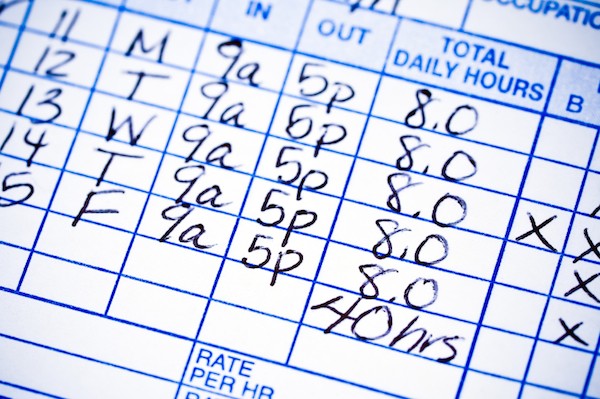 IN OUT TOTAL DAILY HOURS OCCUPATIO B
11 M 9a 5p 8.0
12 T 9a 5p 8.0
13 W 9a 5p 8.0 X
14 T 9a 5p 8.0 X X
5 F 9a 5p 8.0 X
40hrs
RATE
PER HR